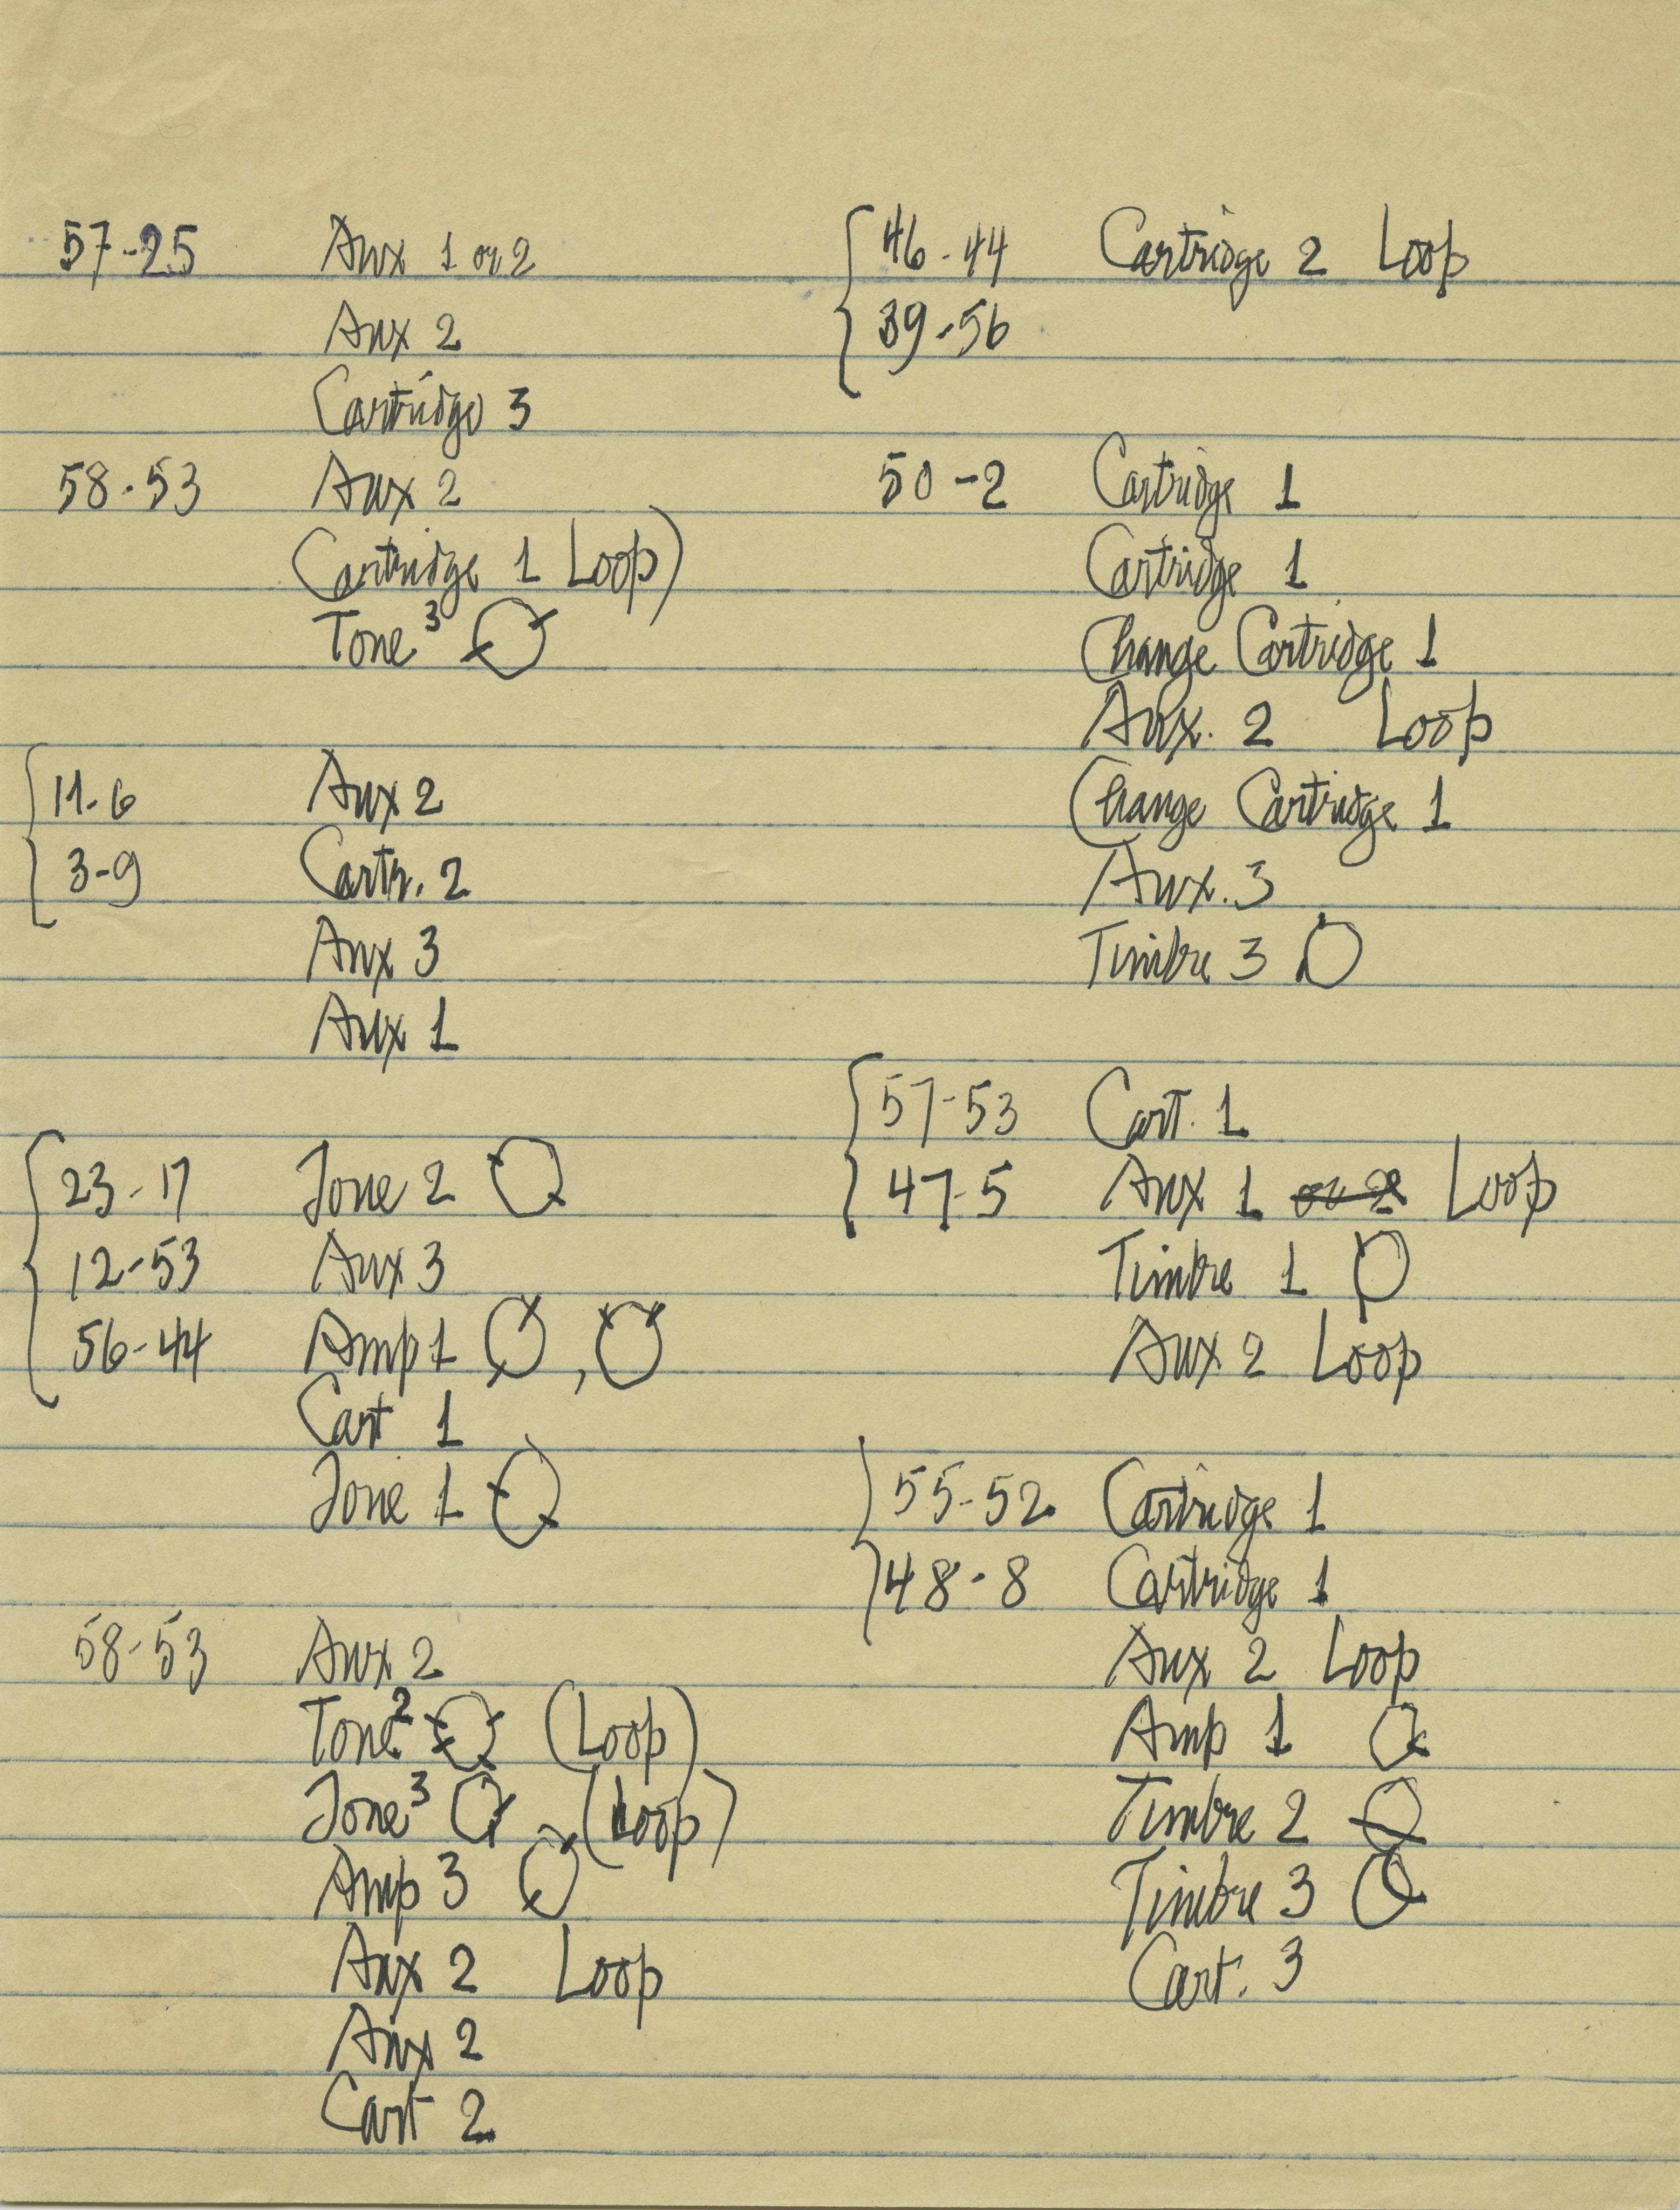 57-25 Aux 1 or 2
Aux 2
Cartridge 3
58-53 Aux 2
Cartridge 1 Loop)
Tone 3
11-6 Aux 2
3-9 Cartr. 2
Aux 3
Aux 1
23-17 Tone 2
12-53 Aux 3
56-44 Amp 1 ,
Cart 1
Tone 1
58-53 Aux 2
Tone 2 (Loop)
Tone 3 (Loop)
Amp 3
Aux 2 Loop
Aux 2
Cart 2
46-44 Cartridge 2 Loop
39-56
50-2 Cartridge 1
Cartridge 1
Change Cartridge 1
Aux. 2 Loop
Change Cartridge 1
Aux. 3
Timbre 3
57-53 Cart. 1
47-5 Aux 1 or 2 Loop
Timbre 1
Aux 2 Loop
55-52 Cartridge 1
48-8 Cartridge 1
Aux 2 Loop
Amp 1
Timbre 2
Timbre 3
Cart. 3